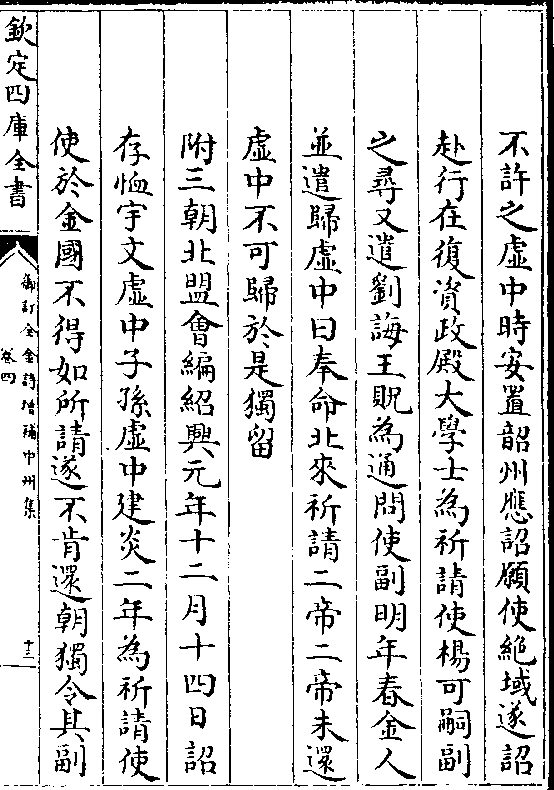 不許之虛中時安置韶州應詔願使絕域遂詔
赴行在復資政殿大學士為祈請使楊可嗣副
之尋又遣劉誨王貺為通問使副明年春金人
並遣歸虛中曰奉命北來祈請二帝二帝未還
虛中不可歸於是獨留
附三朝北盟會編紹興元年十二月十四日詔
存恤宇文虛中子孫虛中建炎二年為祈請使
使於金國不得如所請遂不肯還朝獨令其副
欽定四庫全書
御訂全金詩增補中州集
卷四
十三